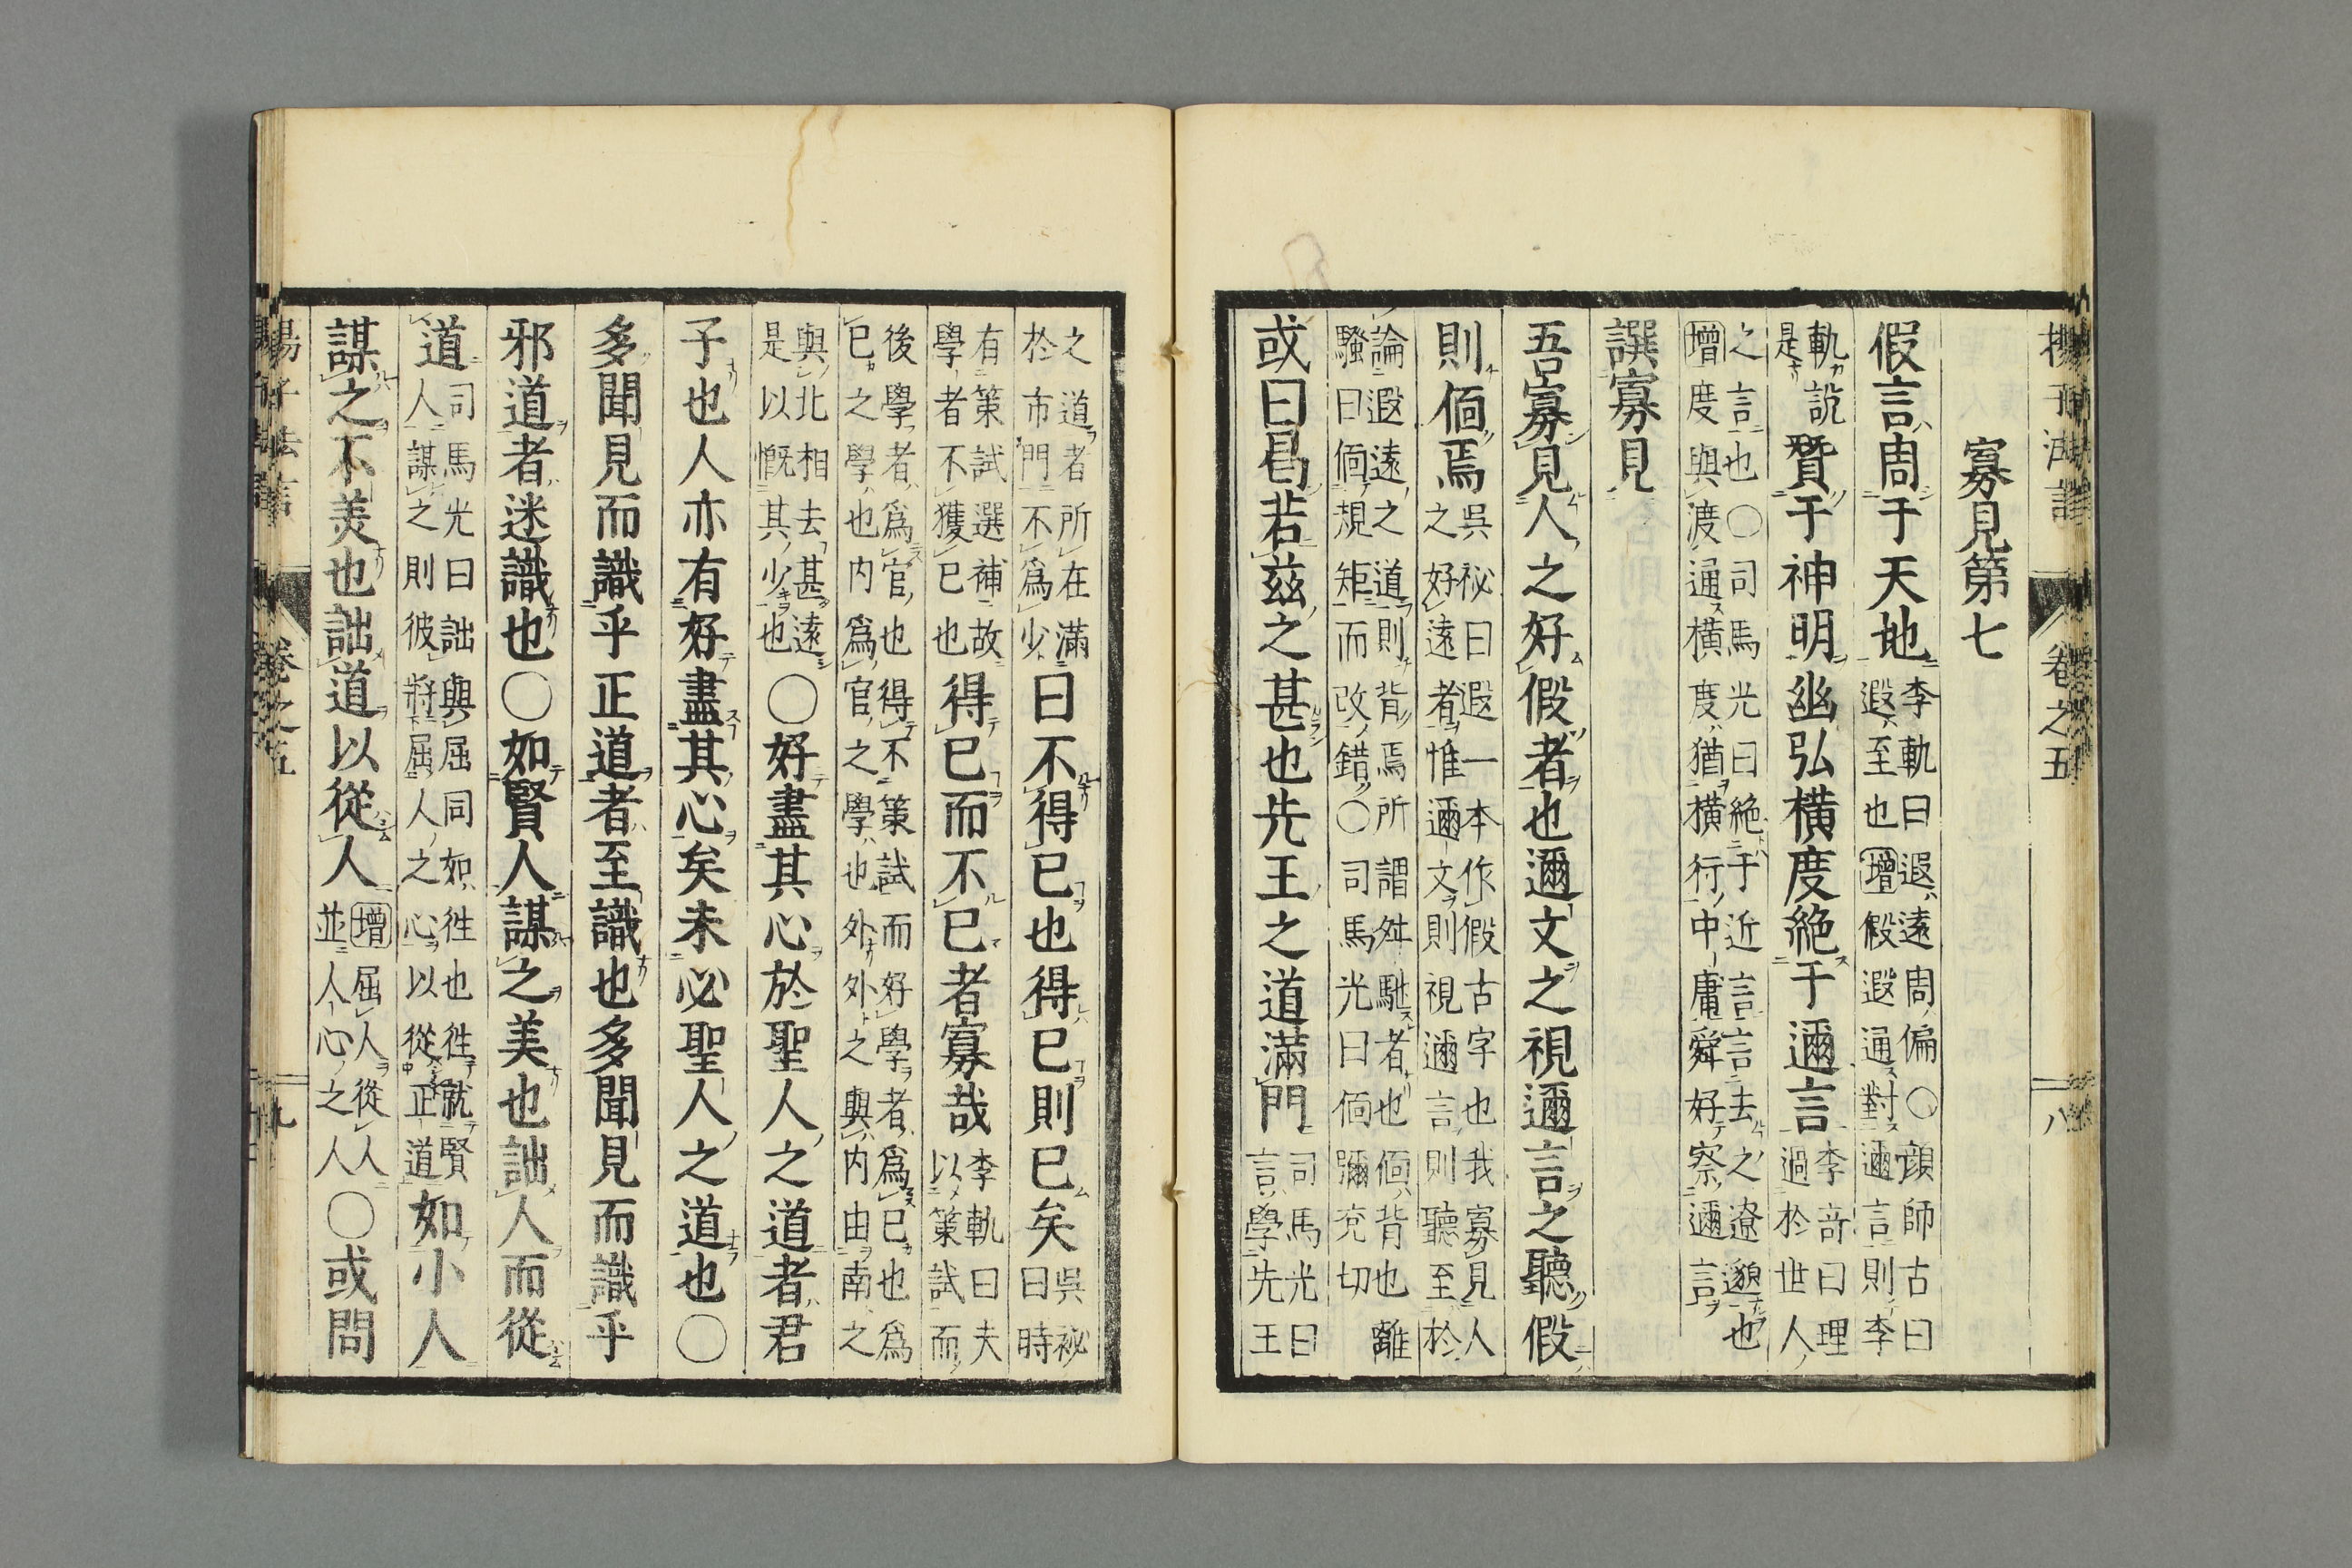 揚子法言 卷之五 八
寡見第七
假言周于天地李軌曰遐遠周偏○顔師古曰遐至也增假遐通對邇言則李
軌說是贊于神明幽弘橫度絶于邇言李奇曰理過於世人
之言也○司馬光曰絶于近言言去之遼邈也增度與渡通橫度猶橫行中庸舜好察邇言
譔寡見
吾寡見人之好假者也邇文之視邇言之聽假
則偭焉吳祕曰遐一本作假古字也我寡見人之好遠者惟邇文則視邇言則聽至於
論遐遠之道則背焉所謂舛馳者也偭背也離騷曰偭規矩而改錯○司馬光曰偭彌兖切
或曰曷若茲之甚也先王之道滿門司馬光曰言學先王
之道者所在滿於市門不爲少曰不得已也得已則已矣吳祕曰時
有策試選補故學者不獲已也得已而不已者寡哉李軌曰夫以策試而
後學者爲官也得不策試而好學者爲己也爲已之學也内爲官之學也外外之與内由南之
與北相去甚遠是以慨其少也○好盡其心於聖人之道者君
子也人亦有好盡其心矣未必聖人之道也○
多聞見而識乎正道者至識也多聞見而識乎
邪道者迷識也○如賢人謀之美也詘人而從
道司馬光曰詘與屈同如往也往就賢人謀之則彼將屈人之心以從正道如小人
謀之不美也詘道以從人增屈人從人並人心之人○或問
揚子法言 卷之五 九